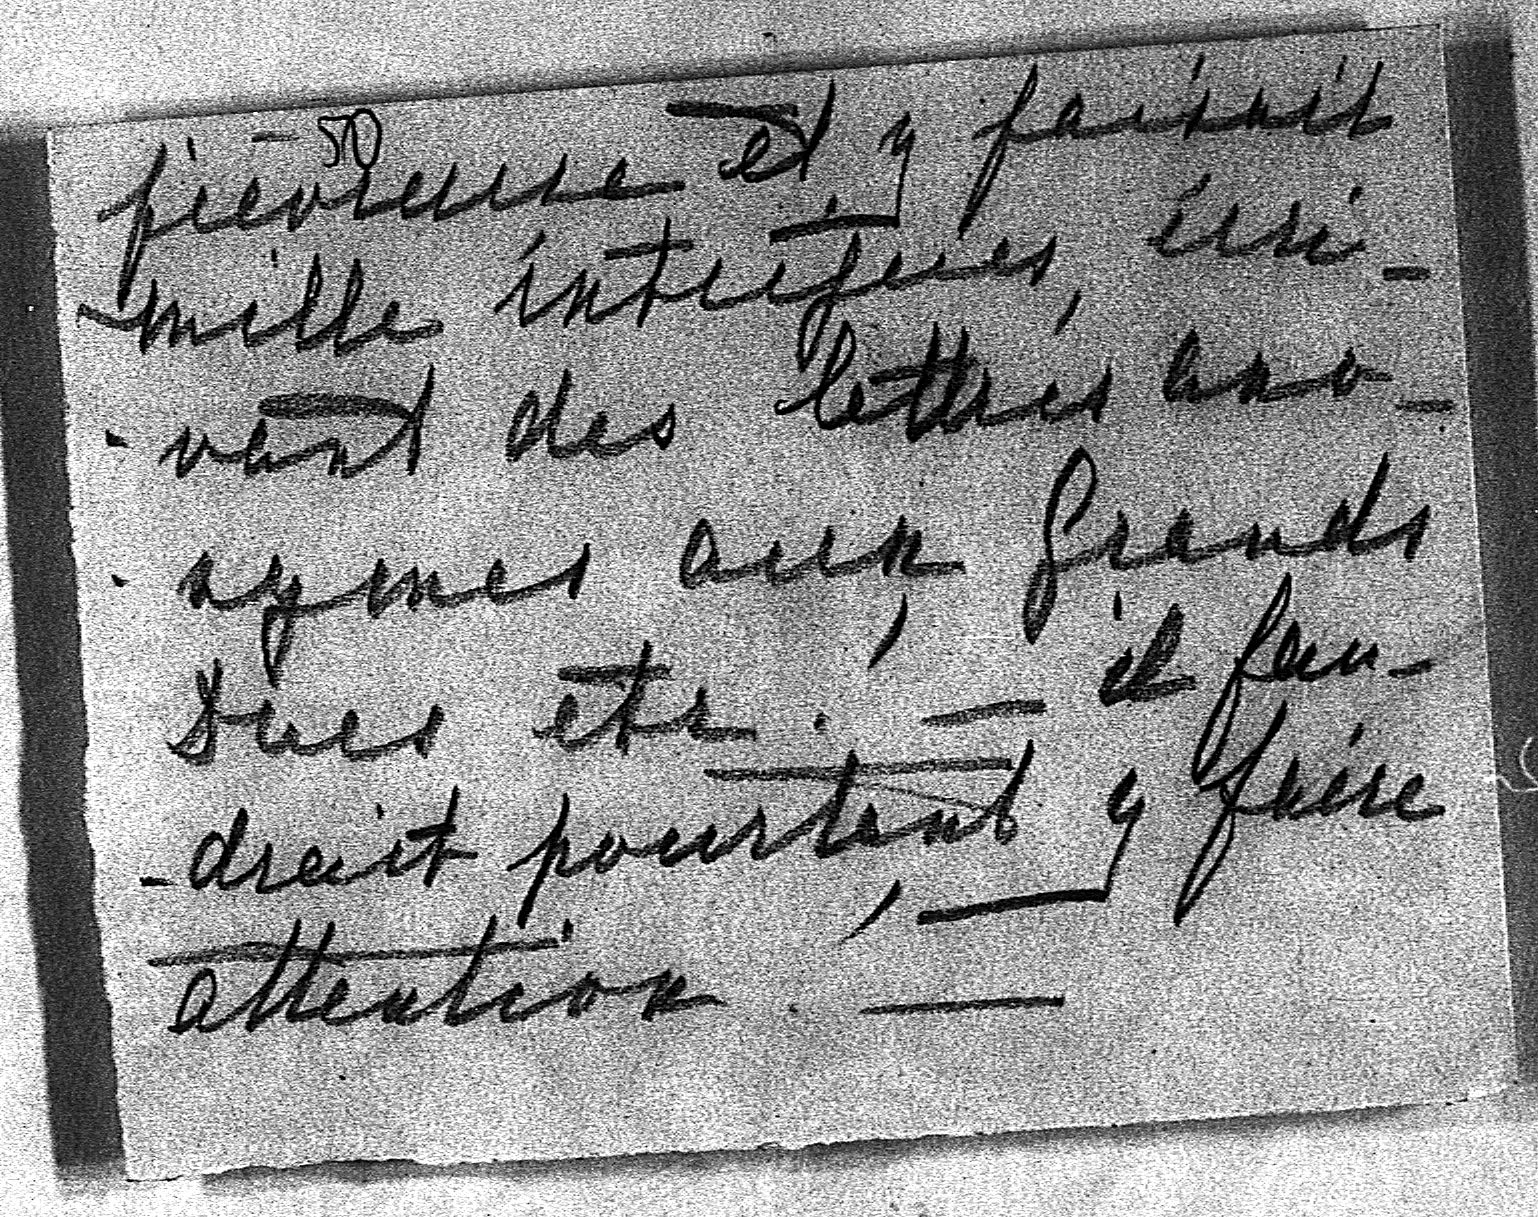 50
fievreuse et, y faisait
mille intrigues, écri-
-vant des lettres ano-
-nymes aux Grands
Ducs etc. — il fau-
-drait pourtant, y faire
attention. —